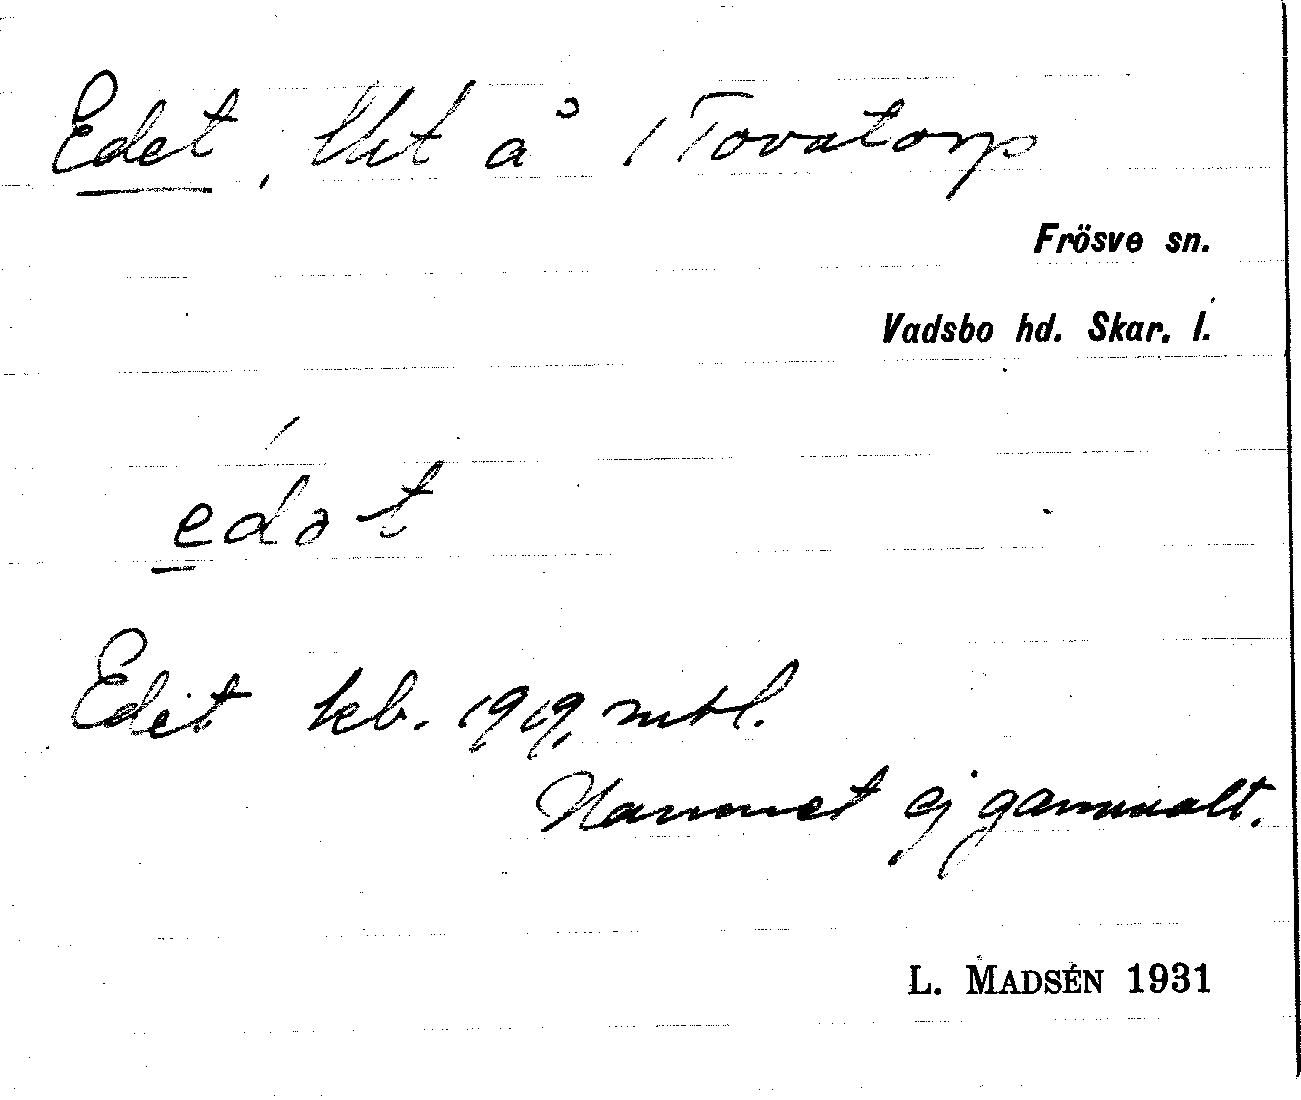 Edet, lht å 1 Tovatorp
Frösve sn.
Vadsbo hd. Skar. l.
édət
Edet kb. 1919, mtl.
Namnet ej gammalt.
L. MADSÉN 1931